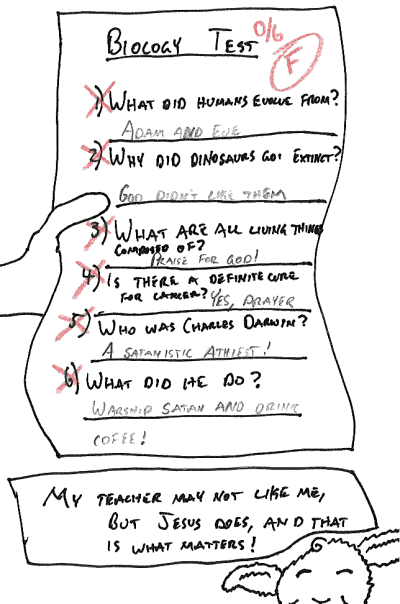 BIOLOGY TEST
0/6
F
1) WHAT DID HUMANS EVOLVE FROM?
ADAM AND EVE
2) WHY DID DINOSAURS GO EXTINCT?
GOD DIDN'T LIKE THEM
3) WHAT ARE ALL LIVING THINGS
COMPOSED OF?
PRAISE FOR GOD!
4) IS THERE A DEFINITE CURE
FOR CANCER? YES, PRAYER
5) WHO WAS CHARLES DARWIN?
A SATANISTIC ATHIEST!
6) WHAT DID HE DO?
WARSHIP SATAN AND DRINK
COFEE!
MY TEACHER MAY NOT LIKE ME,
BUT JESUS DOES, AND THAT
IS WHAT MATTERS!